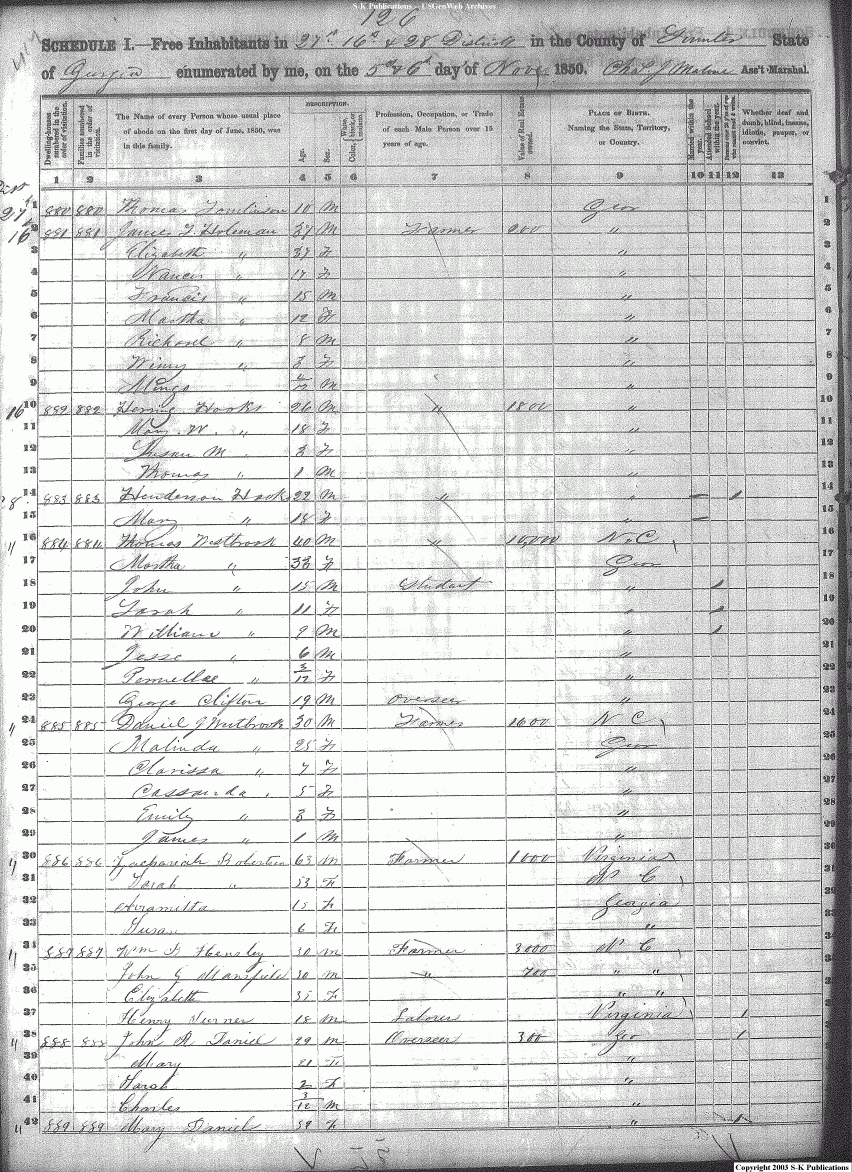 S-K Publications - USGenWeb Archives
126
SCHEDULE I.—Free Inhabitants in 27th 16th & 28 Districts in the County of Sumter State
of Georgia enumerated by me, on the 5th & 6th day of Novr 1850. Chas J Malone Ass't Marshal.
Dwelling-houses numbered in the order of visitation.
Families numbered in the order of visitation.
The Name of every Person whose usual place of abode on the first day of June, 1850, was in this family.
DESCRIPTION.
Age.
Sex.
Color, White, black, or mulatto.
Profession, Occupation, or Trade of each Male Person over 15 years of age.
Value of Real Estate owned.
PLACE OF BIRTH. Naming the State, Territory, or Country.
Married within the year.
Attended School within the year.
Persons over 20 y'rs of age who cannot read & write.
Whether deaf and dumb, blind, insane, idiotic, pauper, or convict.
1 2 3 4 5 6 7 8 9 10 11 12 13
1 880 880 Thomas Tomlinson 10 M Geor 1
27th
16th 2 881 881 James T Holeman 37 M Farmer 200 " 2
3 Elizabeth " 37 F " 3
4 Nancy " 17 F " 4
5 Francis " 15 M " 5
6 Martha " 12 F " 6
7 Richard " 8 M " 7
8 " F " 8
9 M " 9
16 10 882 882 Hooks 26 M " 1800 " 10
11 Mary W. " 18 F " 11
12 Susan M " F " 12
13 Thomas " 1 M " 13
28 14 883 883 Henderson Hooks 22 M " " 14
15 Mary " 18 F " 15
" 16 884 884 Thomas Westbrook 40 M " 10,000 N. C 16
17 Martha " F Geor 17
18 John " 15 M Student " 18
19 Sarah " 11 F " 19
20 William " 9 M " 20
21 Jesse " 6 M " 21
22 " 3/12 F " 22
23 George Clifton 19 M Overseer " 24
" 24 885 885 Daniel J Westbrook 30 M Farmer 1600 N C 25
25 Malinda " 25 F Geor 26
26 Clarissa " 7 F " 27
27 Cassanda " 5 F " 27
28 Emily " 3 F " 28
29 James " 1 M " 29
" 30 886 886 Zachariah Robertson 63 M Farmer 1000 Virginia 30
31 Sarah " 53 F N C 31
32 Aramitta 15 F Georgia 32
33 Susan 6 F " 33
" 34 887 887 Wm Hensley 30 M Farmer 3000 N C 34
35 John G Mansfield 30 M " 700 " " 35
36 Elizabeth 35 F " " 36
37 Henry Turner 18 M Laborer Virginia 37
" 38 888 888 John R Daniel 29 M Overseer 300 Geo 38
39 Mary 21 F " 39
40 Sarah 2 F " 40
41 Charles 3/12 M " 41
" 42 889 889 Mary Daniel 59 F " 42
Copyright 2003 S-K Publications